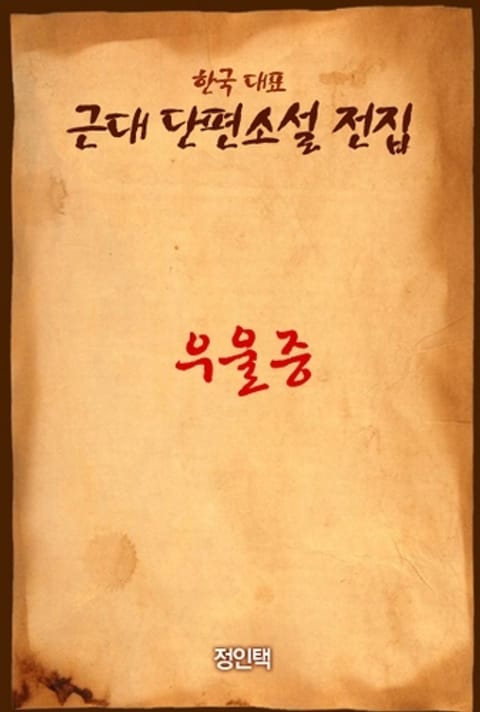 한국 대표
근대 단편소설 전집
우울증
정인택